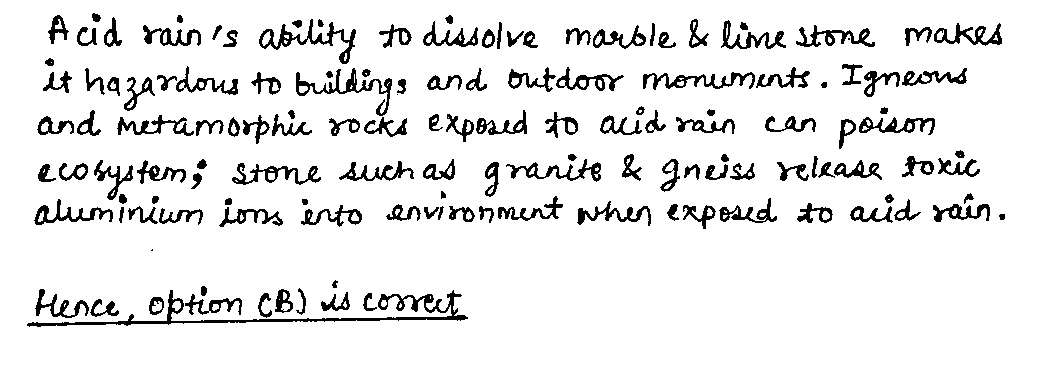 Acid rain's ability to dissolve marble & lime stone makes
it hazardous to buildings and outdoor monuments. Igneous
and metamorphic rocks exposed to acid rain can poison
ecosystem; stone such as granite & gneiss release toxic
aluminium ions into environment when exposed to acid rain.
Hence, option (B) is correct